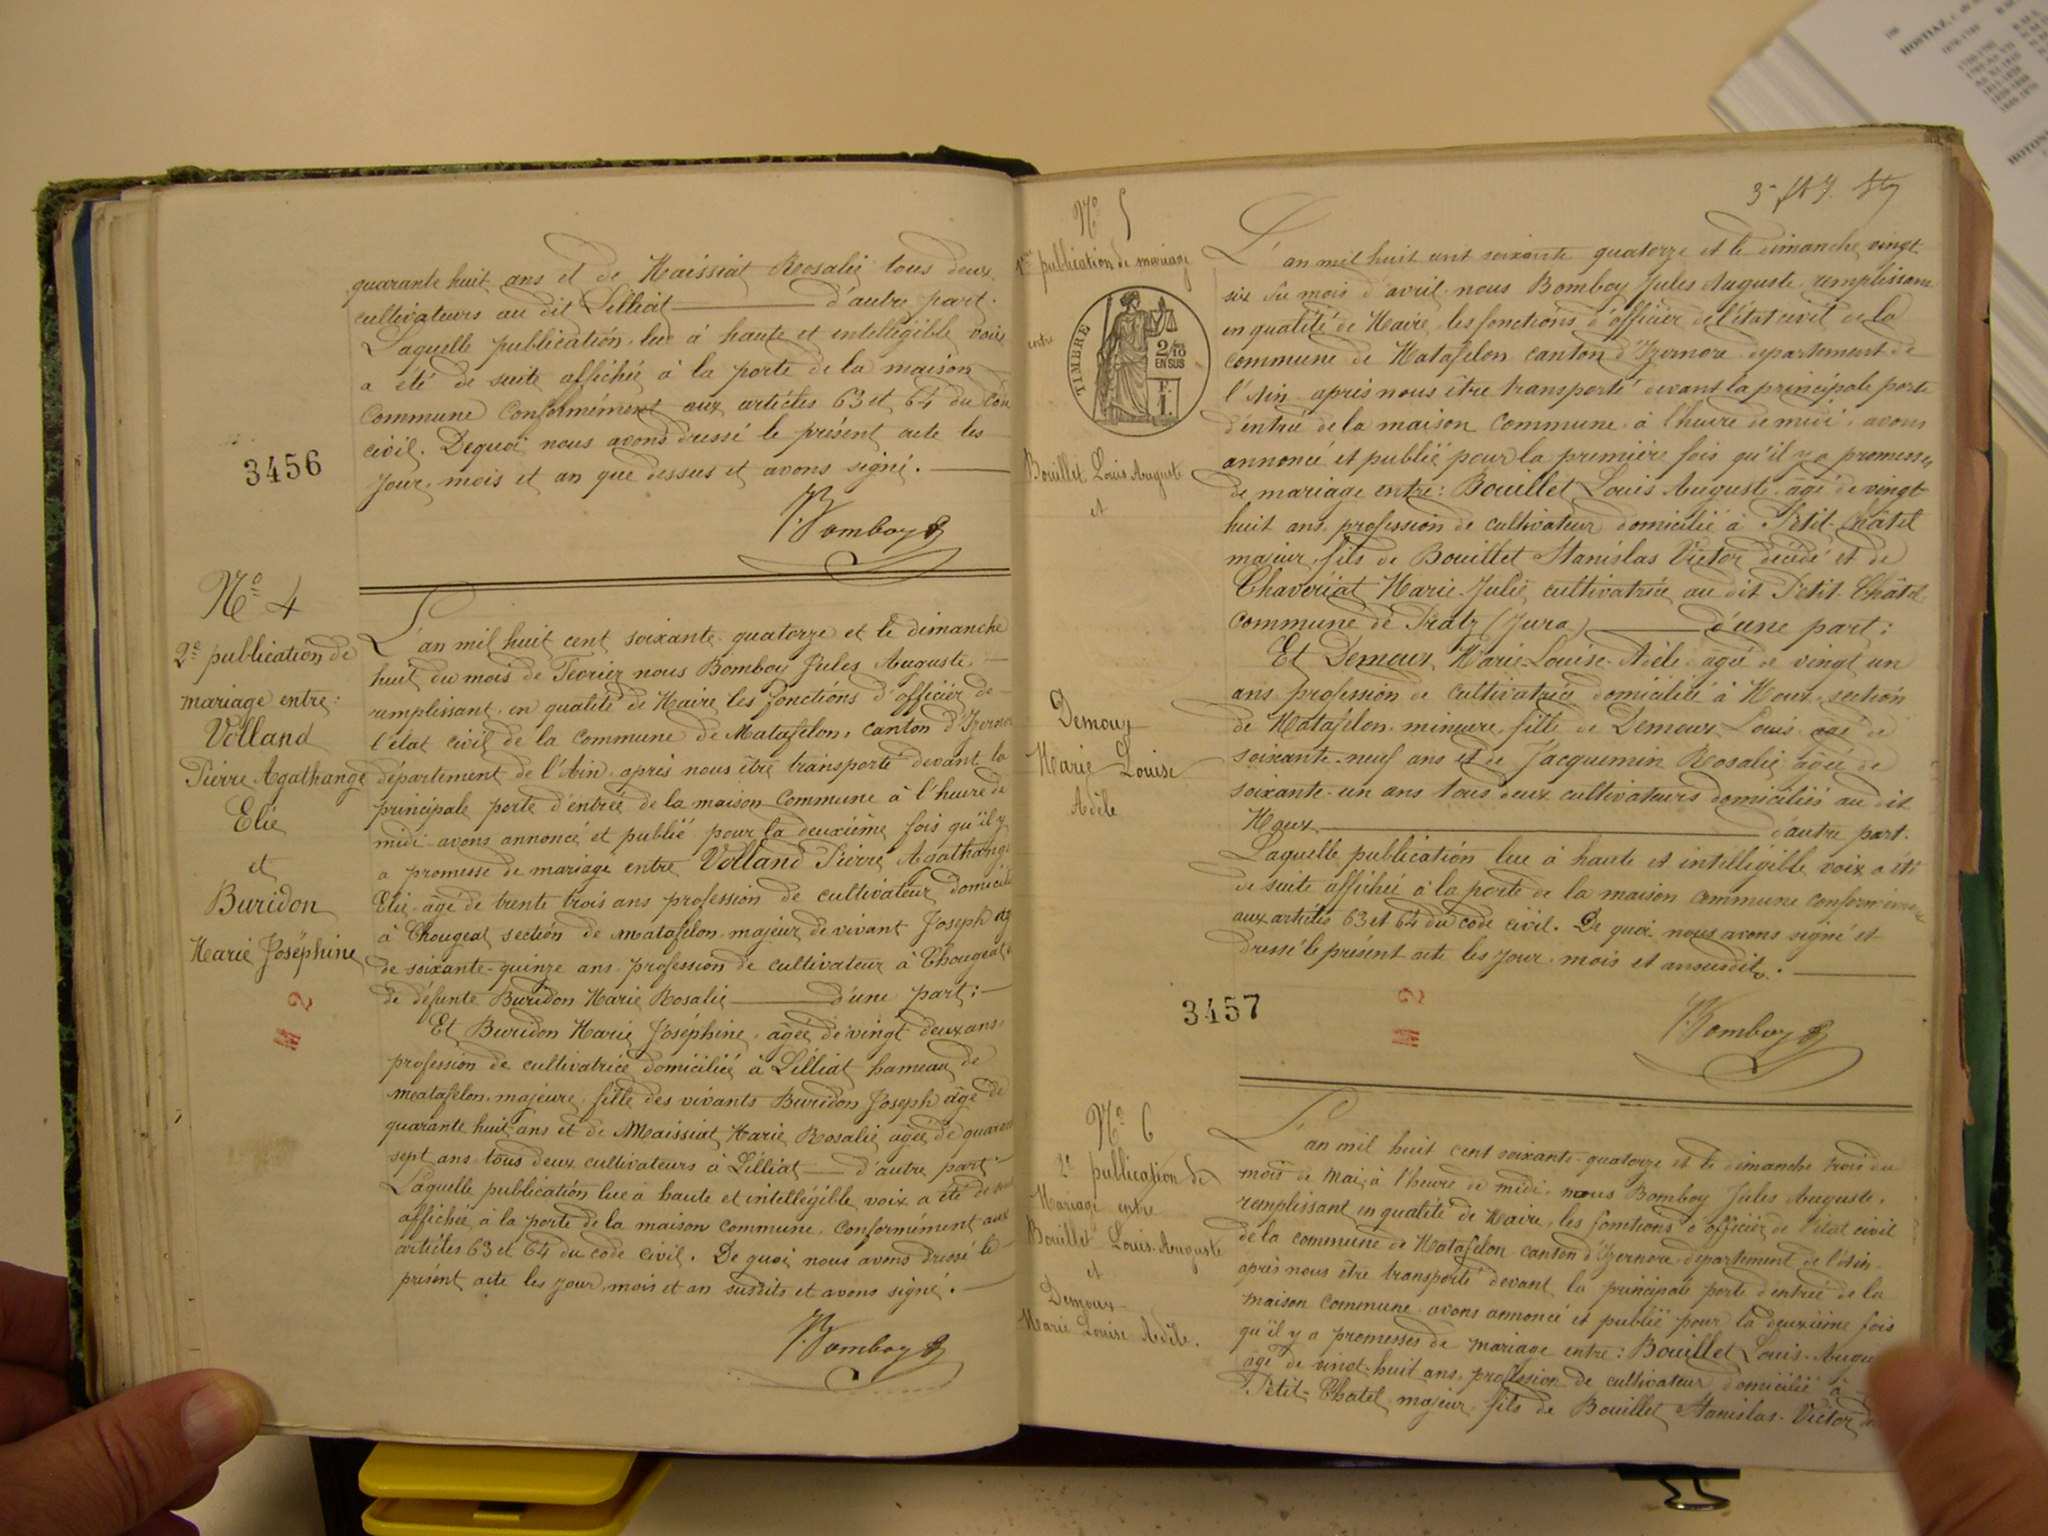 quarante huit ans et de Maissiat Rosalie tous deux
cultivateurs au dit Lilliat ——— d'autre part.
Laquelle publication, lue à haute et intelligible voix
a été de suite affichée à la porte de la maison
Commune Conformément aux articles 63 et 64 du Code
civil. Dequoi nous avons dressé le présent acte les
jour, mois et an que dessus et avons signé.
Bomboy
3456
N° 4
2e publication de
mariage entre:
Volland
Pierre Agathange
Elie
et
Buridon
Marie Joséphine
M 2
L'an mil huit cent soixante quatorze et le dimanche
huit du mois de Fevrier nous Bomboy Jules Auguste,
remplissant en qualité de Maire les fonctions d'officier de
l'état civil de la Commune de Matafelon, canton d'Izernore
département de l'Ain, après nous être transporté devant la
principale porte d'entrée de la maison Commune à l'heure de
midi avons annoncé et publié pour la deuxième fois qu'il y
a promesse de mariage entre Volland Pierre Agathange
Elie, âgé de trente trois ans profession de cultivateur domicilié
à Chougeat section de Matafelon, majeur, de vivant Joseph âgé
de soixante-quinze ans profession de cultivateur à Chougeat et
de défunte Buridon Marie Rosalie ——— d'une part:
Et Buridon Marie Joséphine, âgée de vingt deux ans,
profession de cultivatrice domiciliée à Lilliat hameau de
Matafelon, majeure, fille des vivants Buridon Joseph âgé de
quarante huit ans et de Maissiat Marie Rosalie âgée de quarante
sept ans tous deux cultivateurs à Lilliat — d'autre part
Laquelle publication lue à haute et intelligible voix a été de suite
affichée à la porte de la maison commune, conformément aux
articles 63 et 64 du code civil. De quoi nous avons dressé le
présent acte les jour, mois et an susdits et avons signé.
Bomboy
3e
N° 5
1ère publication de mariage
entre
TIMBRE
2/10
EN SUS
Bouillet Louis Auguste
et
Demoux
Marie Louise
Adèle
L'an mil huit cent soixante quatorze et le dimanche vingt
six du mois d'avril, nous Bomboy Jules Auguste, remplissant
en qualité de Maire, les fonctions d'officier de l'état civil de la
commune de Matafelon canton d'Izernore département de
l'Ain, après nous être transporté devant la principale porte
d'entrée de la maison commune à l'heure de midi, avons
annoncé et publié pour la première fois qu'il y a promesses
de mariage entre: Bouillet Louis Auguste âgé de vingt
huit ans, profession de cultivateur domicilié à Petit-Châtel
majeur, fils de Bouillet Stanislas Victor décédé et de
Chaveriat Marie-Julie, cultivatrice au dit Petit-Châtel
Commune de Pratz (Jura) ——— d'une part:
Et Demoux Marie-Louise-Adèle âgée de vingt un
ans, profession de cultivatrice domiciliée à Heux, section
de Matafelon, mineure, fille de Demoux Louis âgé de
soixante-neuf ans et de Jacquemin Rosalie âgée de
soixante-un ans tous deux cultivateurs domiciliés au dit
Heux ——— d'autre part.
Laquelle publication lue à haute et intelligible voix a été
de suite affichée à la porte de la maison commune conformément
aux articles 63 et 64 du code civil. De quoi nous avons signé et
dressé le présent acte les jour, mois et an susdits.
3457
M 2
Bomboy
N° 6
2e publication de
Mariage entre
Bouillet Louis-Auguste
et
Demoux
Marie Louise Adèle.
L'an mil huit cent soixante-quatorze et le dimanche trois du
mois de Mai, à l'heure de midi, nous Bomboy Jules Auguste,
remplissant en qualité de Maire, les fonctions d'officier de l'état civil
de la commune de Matafelon canton d'Izernore, département de l'Ain,
après nous être transporté devant la principale porte d'entrée de la
maison commune, avons annoncé et publié pour la deuxième fois
qu'il y a promesses de mariage entre: Bouillet Louis-Augu
âgé de vingt-huit ans, profession de cultivateur domicilié à
Petit-Chatel, majeur, fils de Bouillet Stanislas-Victor
HOSTIAZ